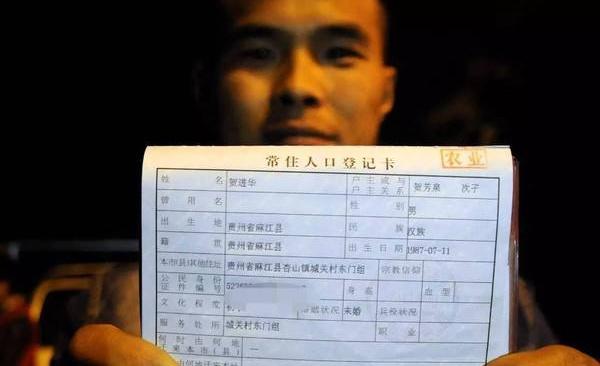 常住人口登记卡 农业
姓名 贺进华 户主或与户主关系 贺芳泉 次子
曾用名 性别 男
出生地 贵州省麻江县 民族 汉族
籍贯 贵州省麻江县 出生日期 1987-07-11
本市(县)其他住址 贵州省麻江县杏山镇城关村东门组 宗教信仰
公民身份证件编号 身高 血型
文化程度 婚姻状况 未婚 兵役状况
服务处所 城关村东门组 职业
何时由何地迁来本市(县) 一